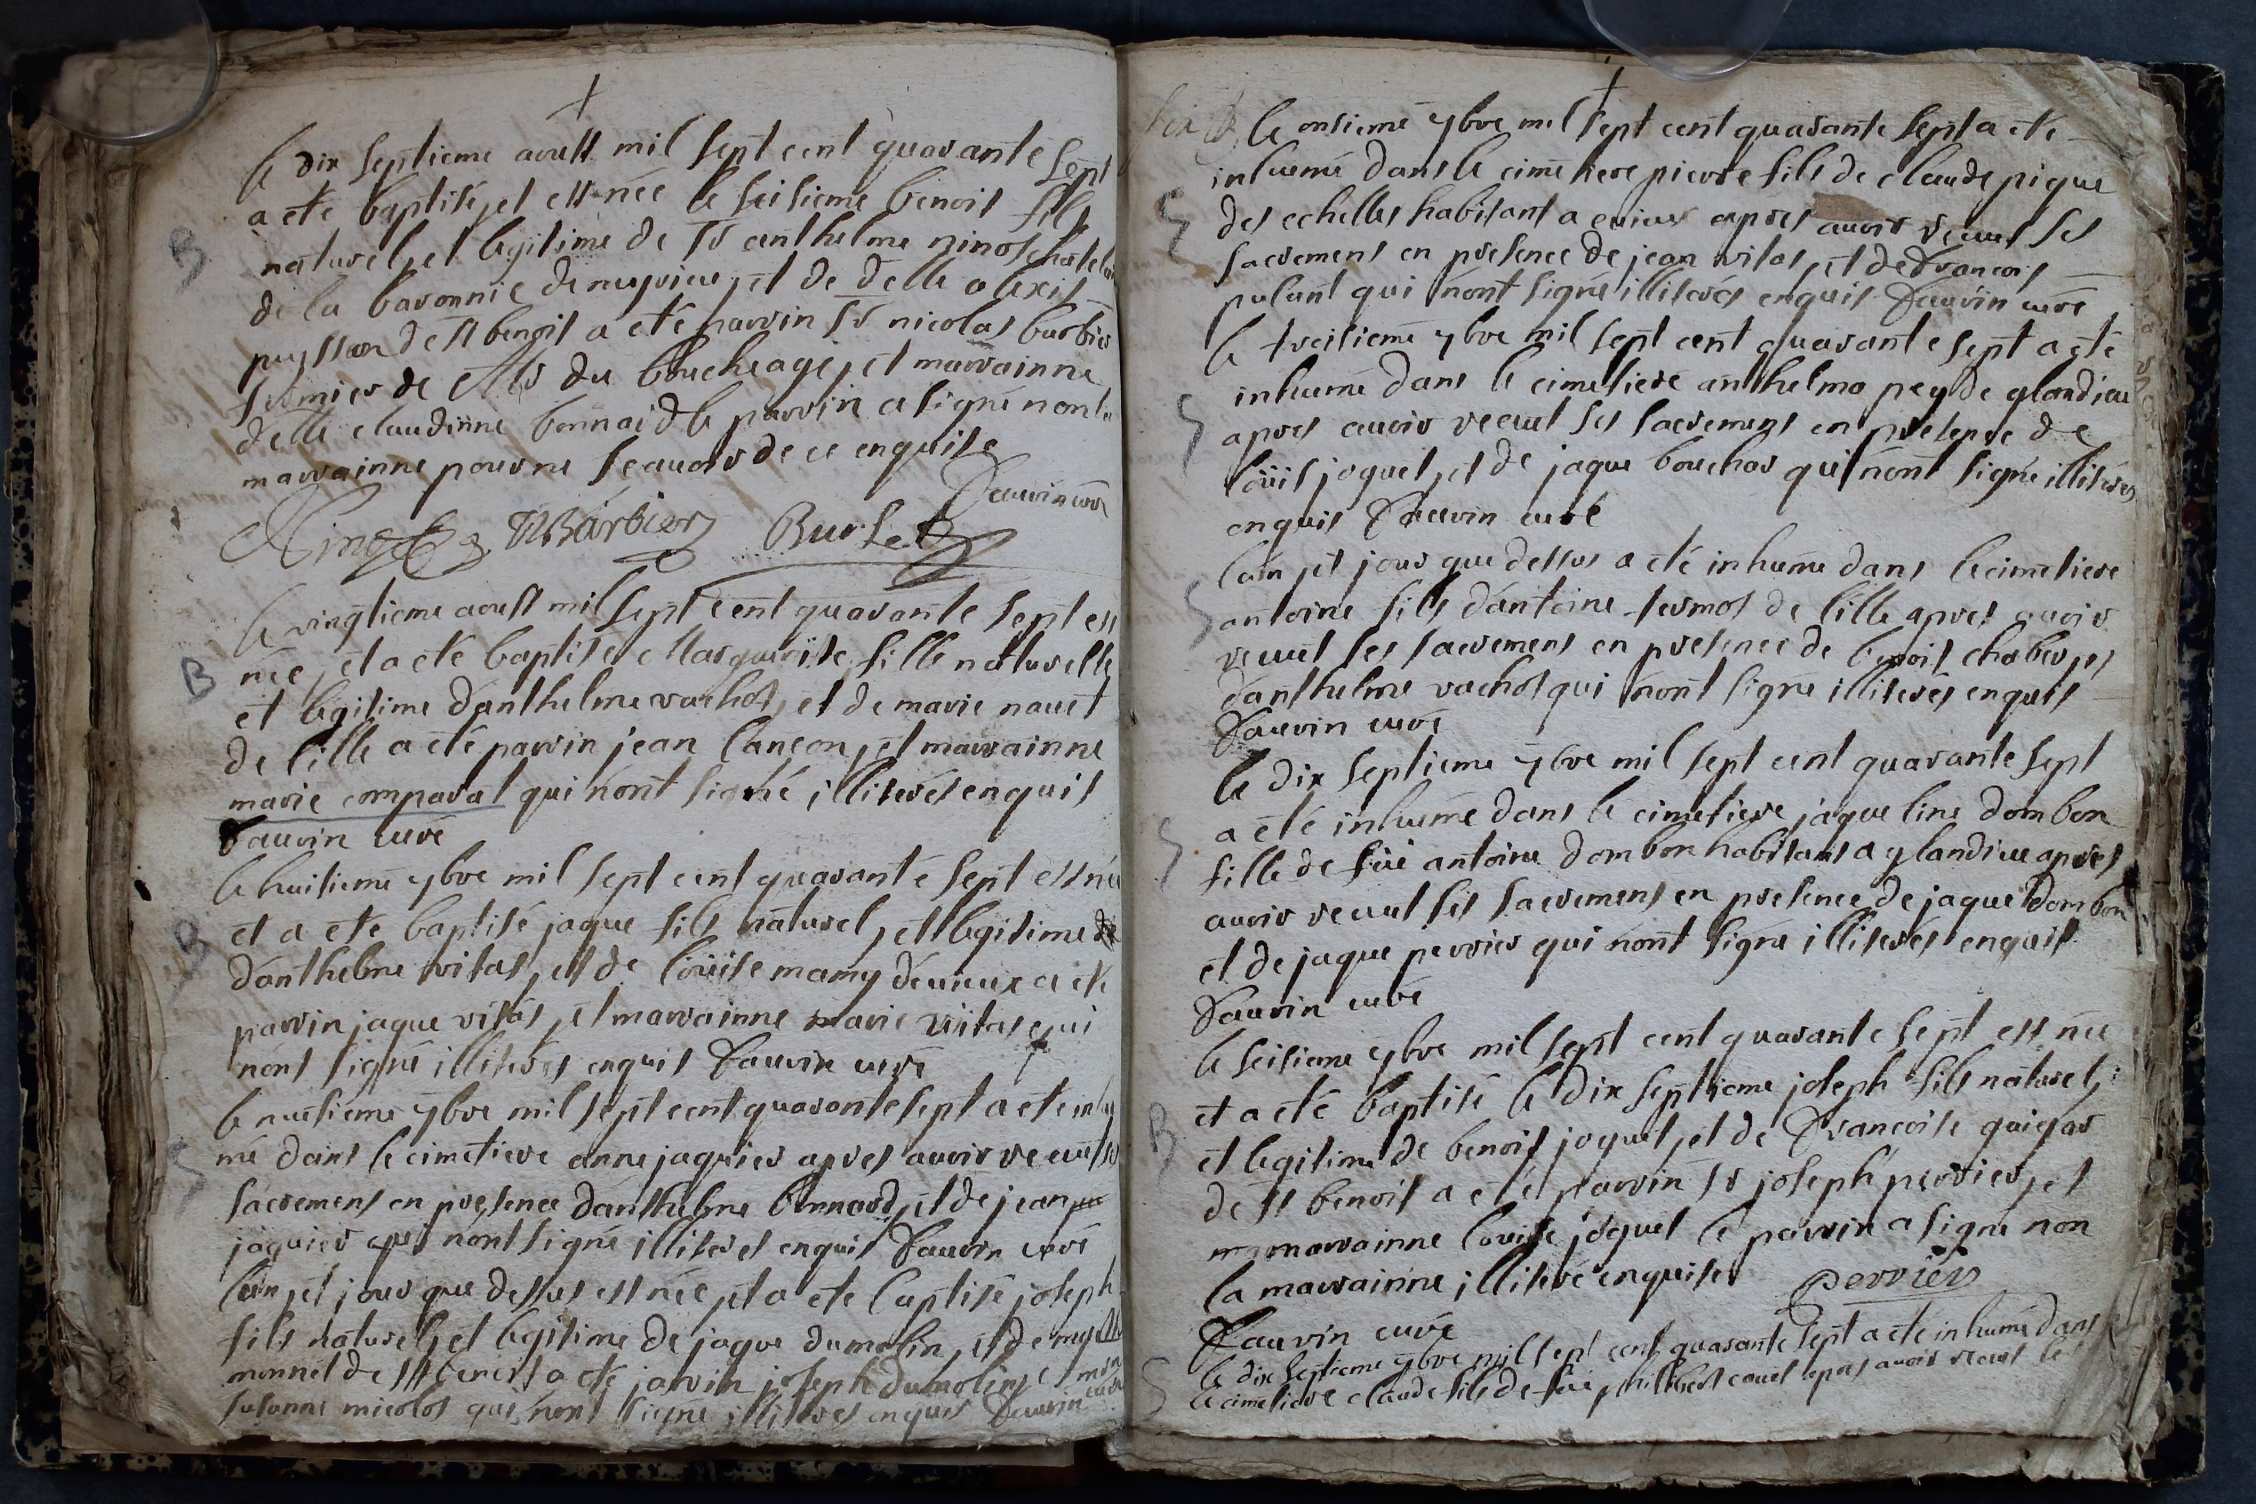 le dix septieme aoust mil sept cent quarante sept
a eté baptisé, et est née le seisieme benoit fils
naturel, et legitime de Sr anthelme ginot chatelain
de la baronnie de meprieu, et de delle alexis
puysson de st benoit a eté parrin Sr nicolas barbier
fermier de du bouchage, et marrainne
delle claudinne bonnard le parrin a signé non la
marrainne pour ne scavoir de ce enquise
fauvin curé
NBarbier Burlet
B
le vingtieme aoust mil sept cent quarante sept est
née, et a eté baptisée Marguerite fille naturelle
et legitime d'anthelme vachot, et de marie navet
de lille a eté parrin jean lançon, et marrainne
marie comparat qui n'ont signé illiterés enquis
fauvin curé
B
le huitieme 7bre mil sept cent quarante sept est née
et a eté baptisé jaque fils naturel, et legitime de
d'anthelme vitas, et de loüise mamy d'evieux a eté
parrin jaque vitas, et marrainne marie vitas qui
n'ont signé illiterés enquis fauvin curé
B
le neufieme 7bre mil sept cent quarante sept a eté inhu
mé dans le cimetiere anne jaquier apres avoir recuut ses
sacremens en presence d'anthelme bonnard, et de jean
jaquier qui n'ont signé illiterés enquis fauvin curé
S
l'an, et jour que dessus est née, et a eté baptisé joseph
fils naturel, et legitime de jaque dumolin, et de
monnet de st benoit a eté parrin joseph dumolin, et
susanne micolos qui n'ont signé illiterés enquis fauvin
curé
le onsieme 7bre mil sept cent quarante sept a eté
inhumé dans le cimetiere pierre fils de claude pique
des echelles habitant a evieux apres avoir recuut ses
sacremens en presence de jean vitas, et de francois
pulant qui n'ont signé illiterés enquis fauvin curé
S
le treisieme 7bre mil sept cent quarante sept a eté
inhumé dans le cimetiere anthelme pey de glandieu
apres avoir recuut ses sacremens en presence de
loüis joquet, et de jaque bouchar qui n'ont signé illiterés
enquis fauvin curé
S
l'an, et jour que dessus a eté inhumé dans le cimetiere
antoine fils d'antoine termos de lille apres avoir
recuut ses sacremens en presence de benoit charber, et
d'anthelme vachot qui n'ont signé illiterés enquis
fauvin curé
S
le dix septieme 7bre mil sept cent quarante sept
a eté inhumée dans le cimetiere jaqueline dombon
fille de füé antoine dombon habitans a glandieu apres
avoir recuut ses sacremens en presence de jaque dombon
et de jaque perrier qui n'ont signé illiterés enquis
fauvin curé
S
le seisieme 7bre mil sept cent quarante sept est née
et a eté baptisé le dix septieme joseph fils naturel,
et legitime de benoit joquet, et de francoise guigar
de st benoit a eté parrin Sr joseph perrier, et
marrainne louise joquet le parrin a signé non
la marrainne, illiteré enquise
Perrier
fauvin curé
B
le dix septieme 7bre mil sept cent quarante sept a eté inhumé dans
le cimetiere claude fils de füé philibert couet apres avoir recuut les
S